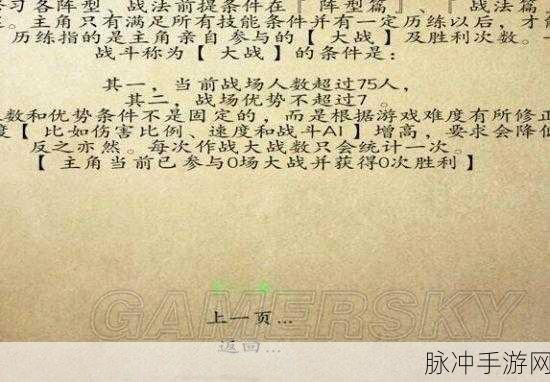 学习各阵型、战法前提条件在『阵型篇』、『战法篇』
主角只有满足所有技能条件并有一定历练以后，才能
历练指的是主角亲自参与的【大战】及胜利次数。一
战斗称为【大战】的条件是：
其一，当前战场人数超过75人，
其二，战场优势不超过7。
数和优势条件不是固定的，而是根据游戏难度有所修正
度【比如伤害比例、速度和战斗AI】增高，要求会降低
反之亦然。每次作战大战数只会统计一次。
【主角当前已参与0场大战并获得0次胜利】
GAMERSKY
上一页...
返回...
脉冲手游网